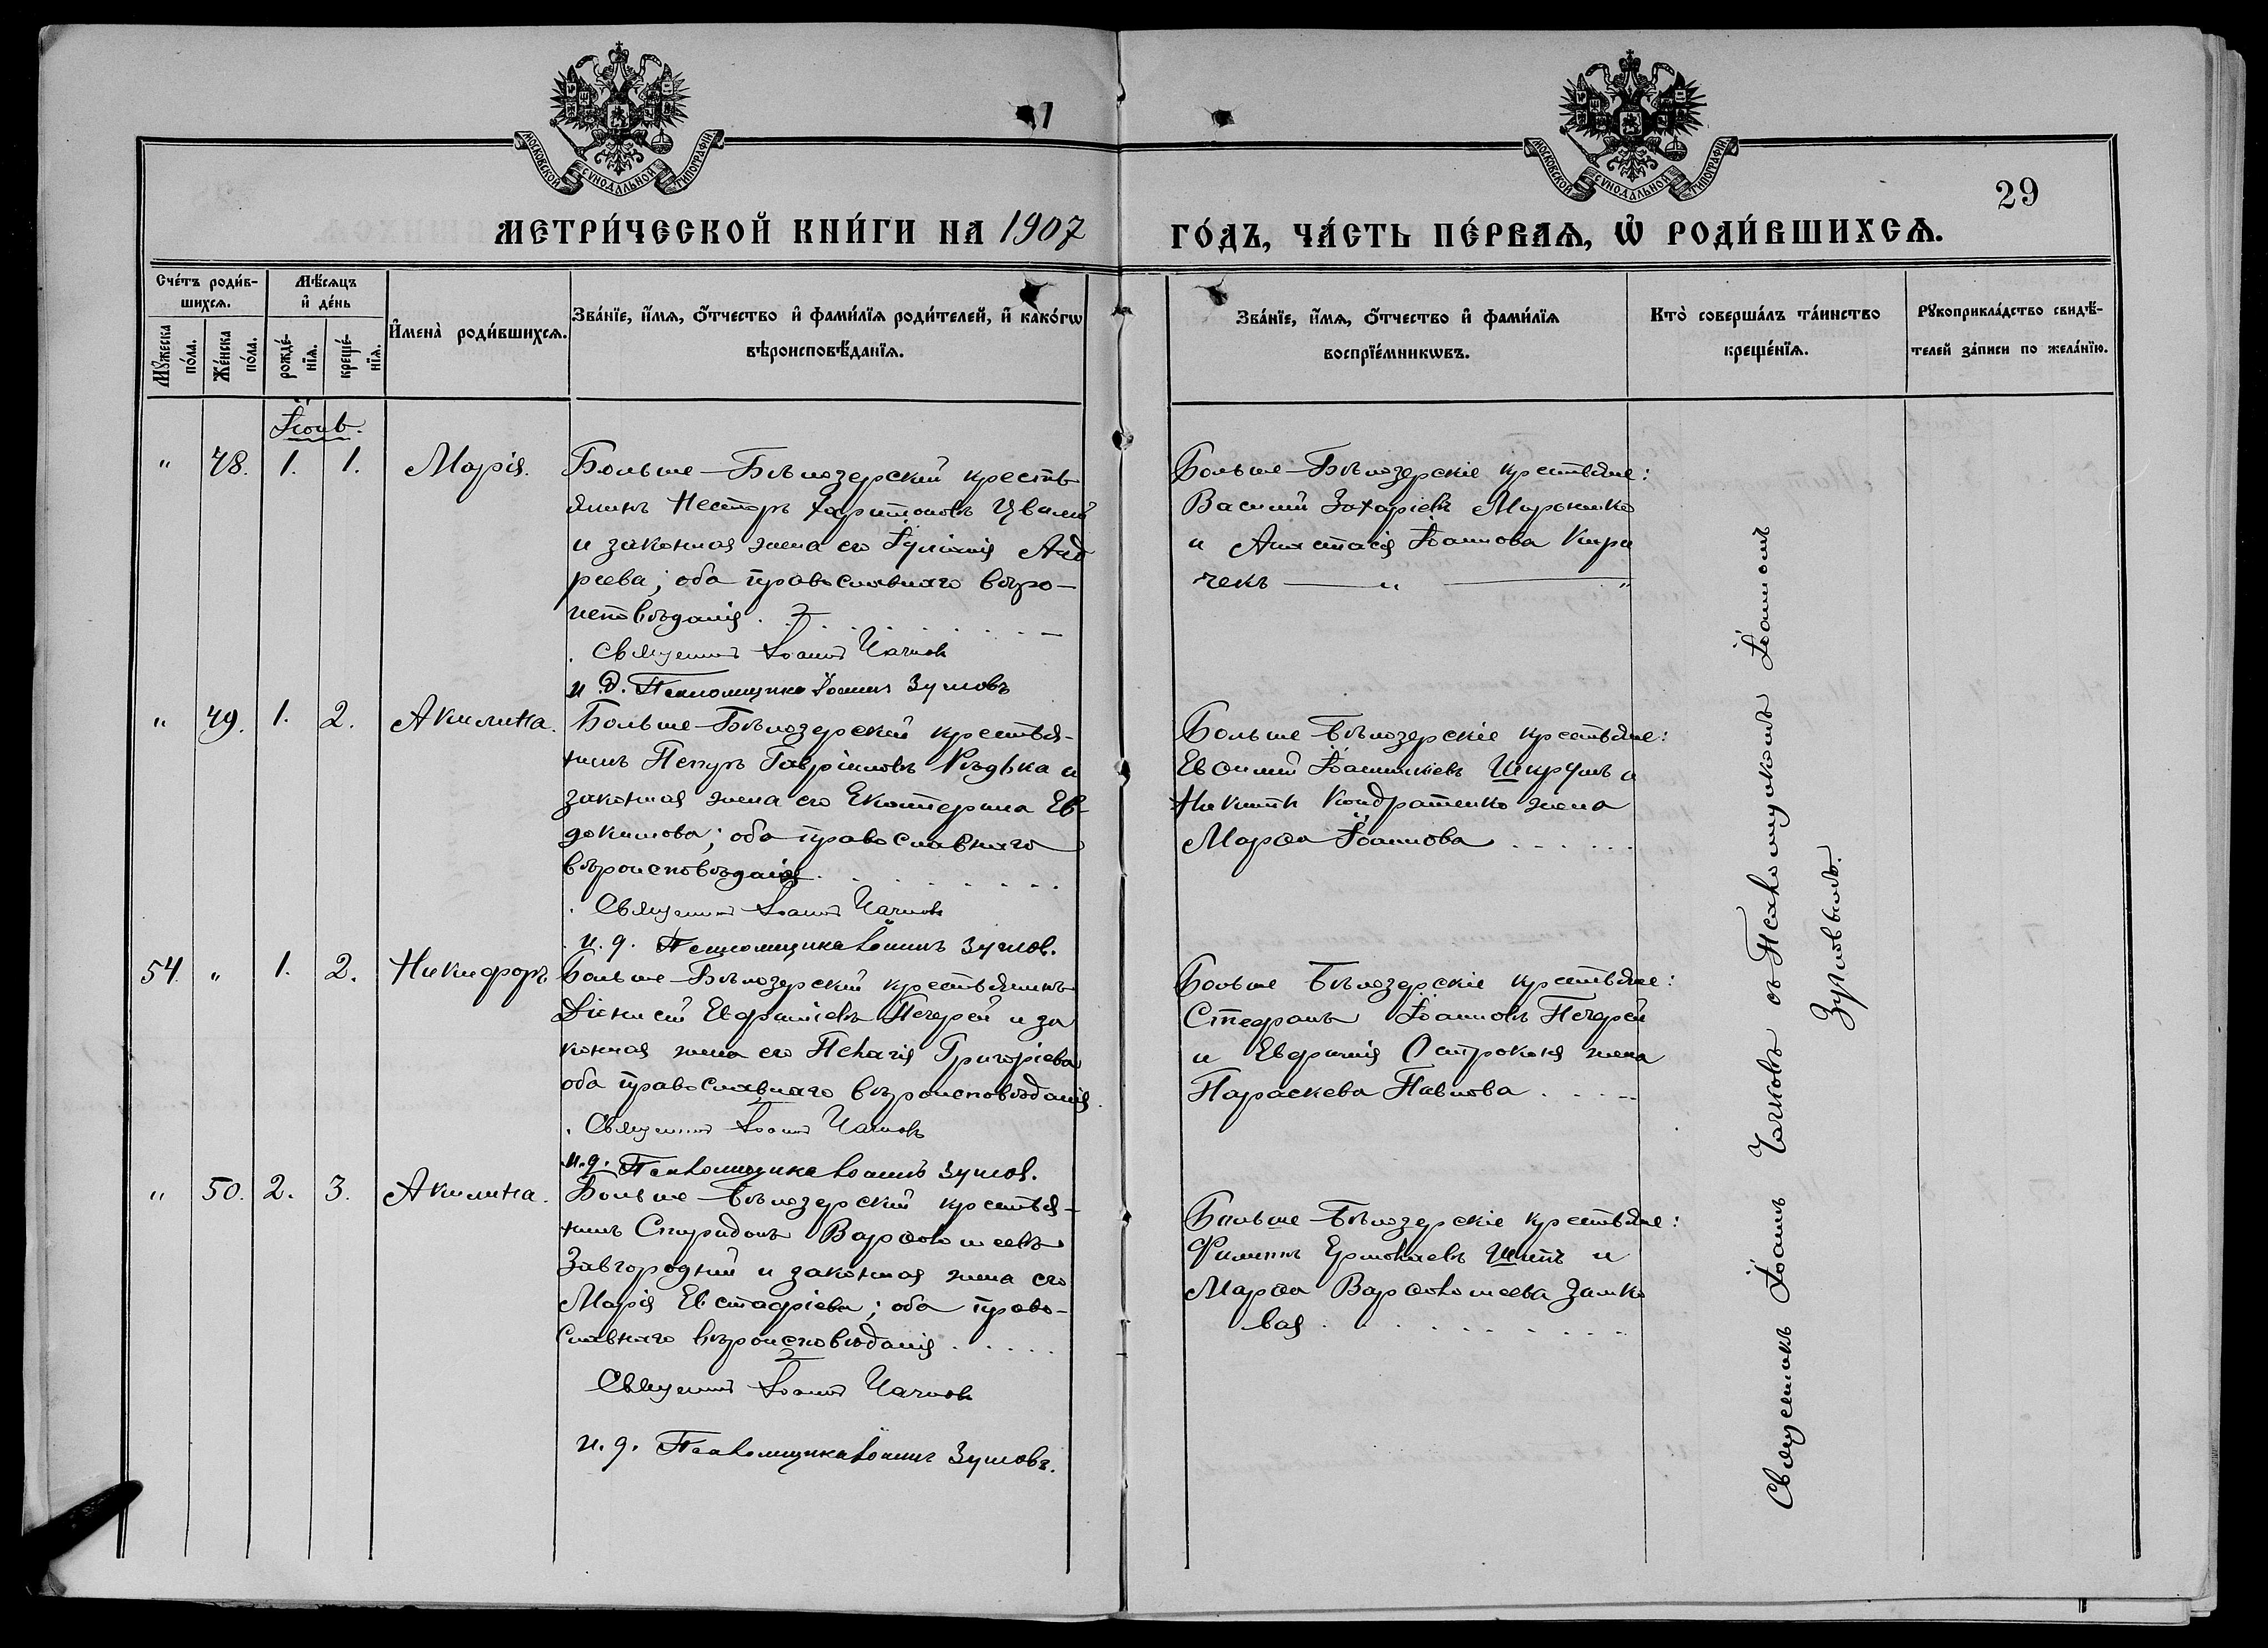 МОСКОВСКОЙ СѴНОДАЛЬНОЙ ТИПОГРАФІИ
МОСКОВСКОЙ СѴНОДАЛЬНОЙ ТИПОГРАФІИ
29
МЕТРИ́ЧЕСКОЙ КНИ́ГИ НА 1907
ГО́ДЪ, ЧА́СТЬ ПЕ́РВАѦ, Ѡ҆ РОДИ́ВШИХСѦ.
Сче́тъ роди́в-
шихсѧ.
Мꙋ́жеска
по́ла.
Же́нска
по́ла.
Мѣ́сѧцъ
и҆ де́нь
рожде́-
нїѧ.
креще́-
нїѧ.
И҆мена̀ роди́вшихсѧ.
Зва́нїе, и҆́мѧ, ѻ҆́тчество и҆ фами́лїѧ роди́телей, и҆ како́гѡ
вѣроисповѣ́данїѧ.
Зва́нїе, и҆́мѧ, ѻ҆́тчество и҆ фами́лїѧ
воспрїе́мникѡвъ.
Кто̀ соверша́лъ та́инство
креще́нїѧ.
Рꙋкоприкла́дство свидѣ́-
телей за́писи по жела́нїю.
Іюнь.
" 48. 1. 1. Марія.
Больше-Бѣлозерскій кресть
янинъ Несторъ Харитоновъ Цвилий
и законная жена его Іуліанія Анд
реева; оба православнаго вѣро-
исповѣданія.
Священникъ Іоаннъ Чачковъ
и.д. Псаломщика Іоаннъ Зумовъ
Больше-Бѣлозерскіе крестьяне:
Василій Захаріевъ Мироненко
и Анастасія Іоаннова Кири
ченъ
" 49. 1. 2. Акилина.
Больше-Бѣлозерскій крестья-
нинъ Петръ Гавріиловъ Рѣдька и
законная жена его Екатерина Ев-
докимова; оба православнаго
вѣроисповѣданія
Священникъ Іоаннъ Чачковъ
и.д. Псаломщика Іоаннъ Зумов.
Больше Бѣлозерскіе крестьяне:
Евѳимій Іоанникіевъ и
Никиты Кондратенко жена
Марѳа Іоаннова
54. " 1. 2. Никифоръ
Больше-Бѣлозерскій крестьянинъ
Діонисій Евфиміевъ Печерей и за
конная жена его Пелагія Григоріева
оба православнаго вѣроисповѣданія.
Священникъ Іоаннъ Чачковъ
и.д. Псаломщика Іоаннъ Зумов.
Больше Бѣлозерскіе крестьяне:
Стефанъ Іоанновъ Печерей
и Евфимія жена
Параскева Павлова
" 50. 2. 3. Акилина.
Больше-Бѣлозерскій крестья-
нинъ Спиридонъ Варѳоломеевъ
Завгородній и законная жена его
Марія Евстафіева; оба право-
славнаго вѣроисповѣданія
Священникъ Іоаннъ Чачковъ
и.д. Псаломщика Іоаннъ Зумовъ.
Больше-Бѣлозерскіе крестьяне:
Филиппъ Ермолаевъ и
Марѳа Варѳоломеева Замко
вая
Священникъ Іоаннъ Чачковъ съ Псаломщикомъ Іоанномъ
Зумовымъ.